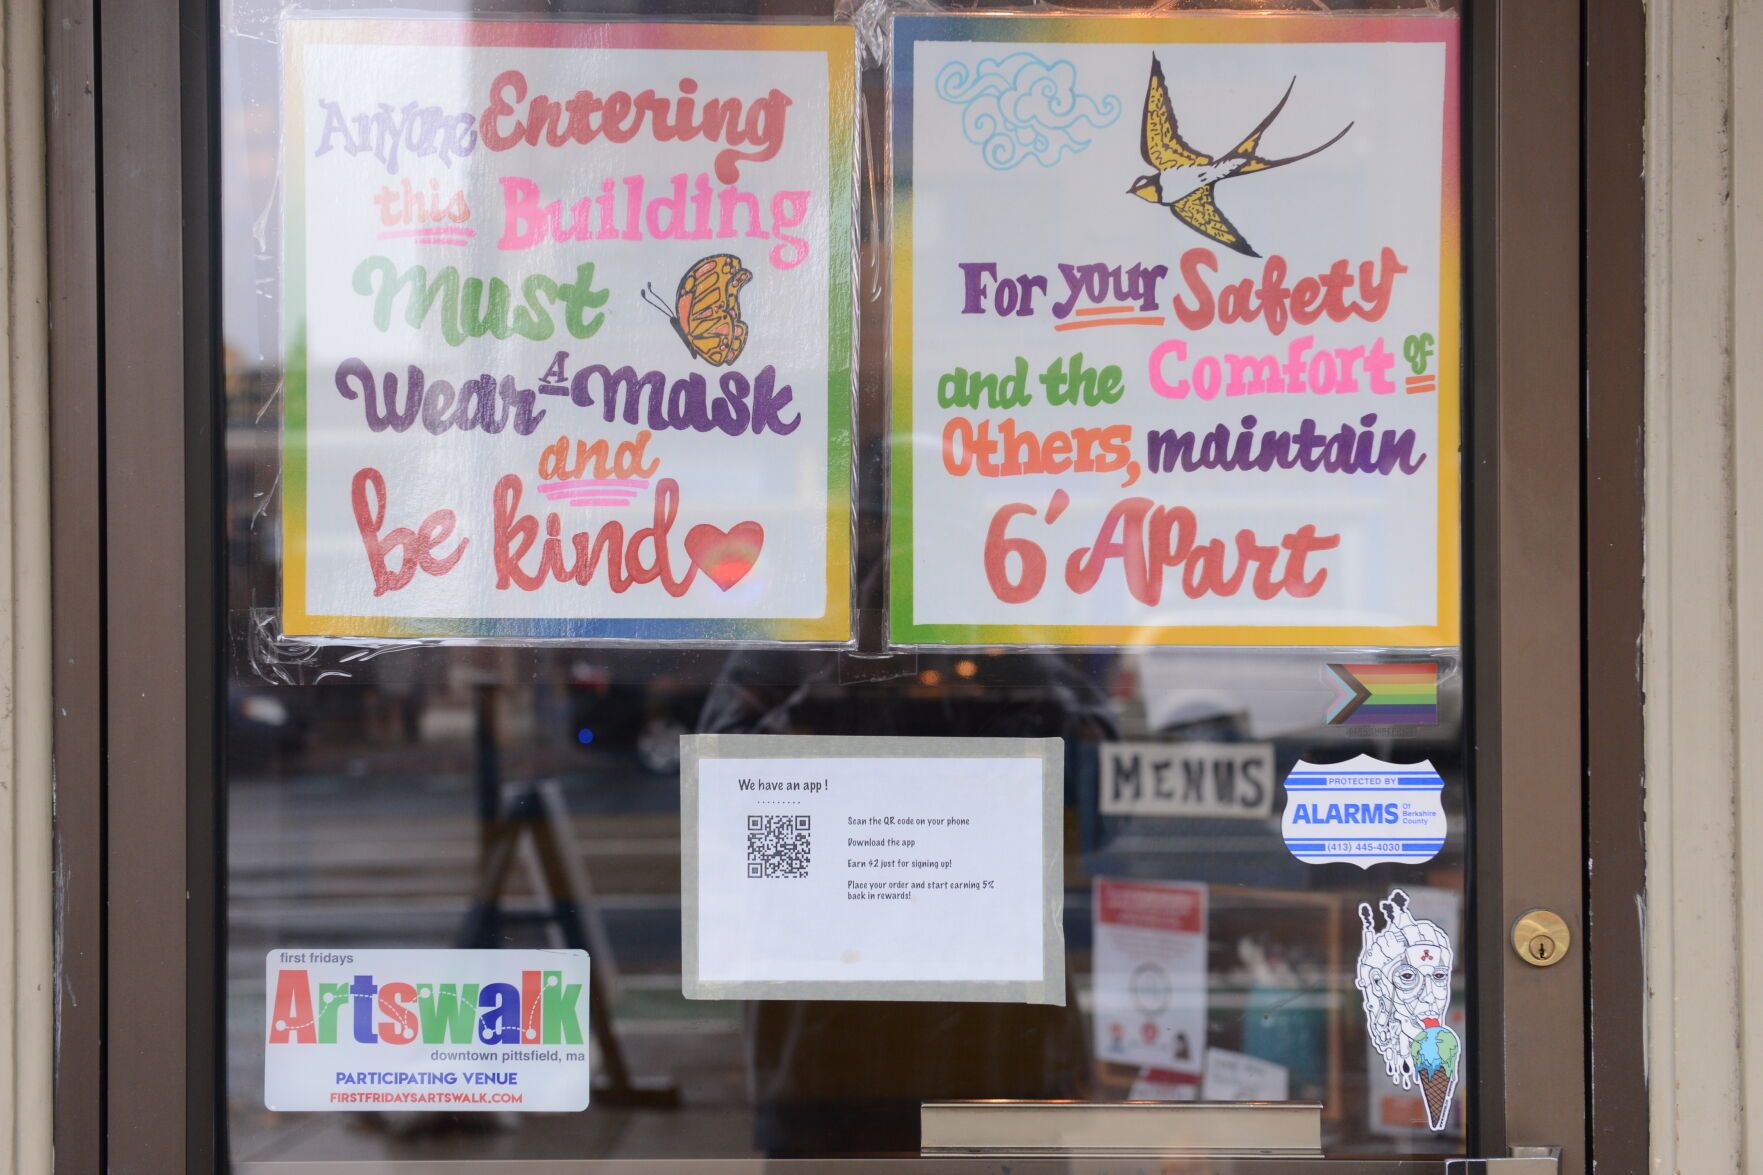 Anyone Entering
this Building
Must
Wear A Mask
and
be kind
For your Safety
and the Comfort of
Others, maintain
6' Apart
We have an app !
Scan the QR code on your phone
Download the app
Earn $2 just for signing up!
Place your order and start earning 5%
back in rewards!
MENUS
PROTECTED BY
ALARMS Of
Berkshire
County
(413) 445-4030
first fridays
Artswalk
downtown pittsfield, ma
PARTICIPATING VENUE
FIRSTFRIDAYSARTSWALK.COM